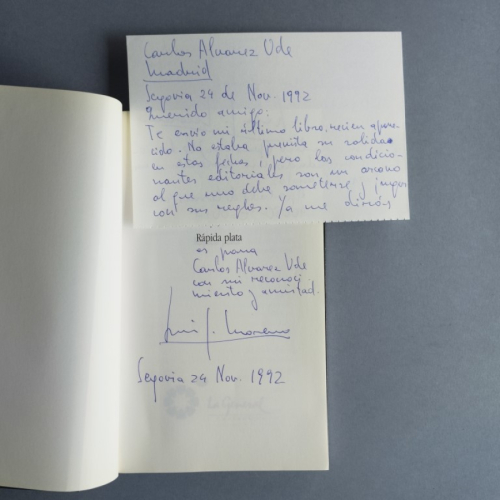 Carlos Alvarez Ude
Madrid
Segovia 24 de Nov. 1992
Querido amigo:
Te envio mi último libro, recien apare-
cido. No estaba prevista su salida
en estas fechas, pero los condicio-
nantes editoriales son un arcano
al que uno debe someterse y jugar
con sus reglas. Ya me dirás
Rápida plata
es para
Carlos Alvarez Ude
con mi reconoci
miento y amistad.
Luis J. Moreno
Segovia 24 Nov. 1992
La General